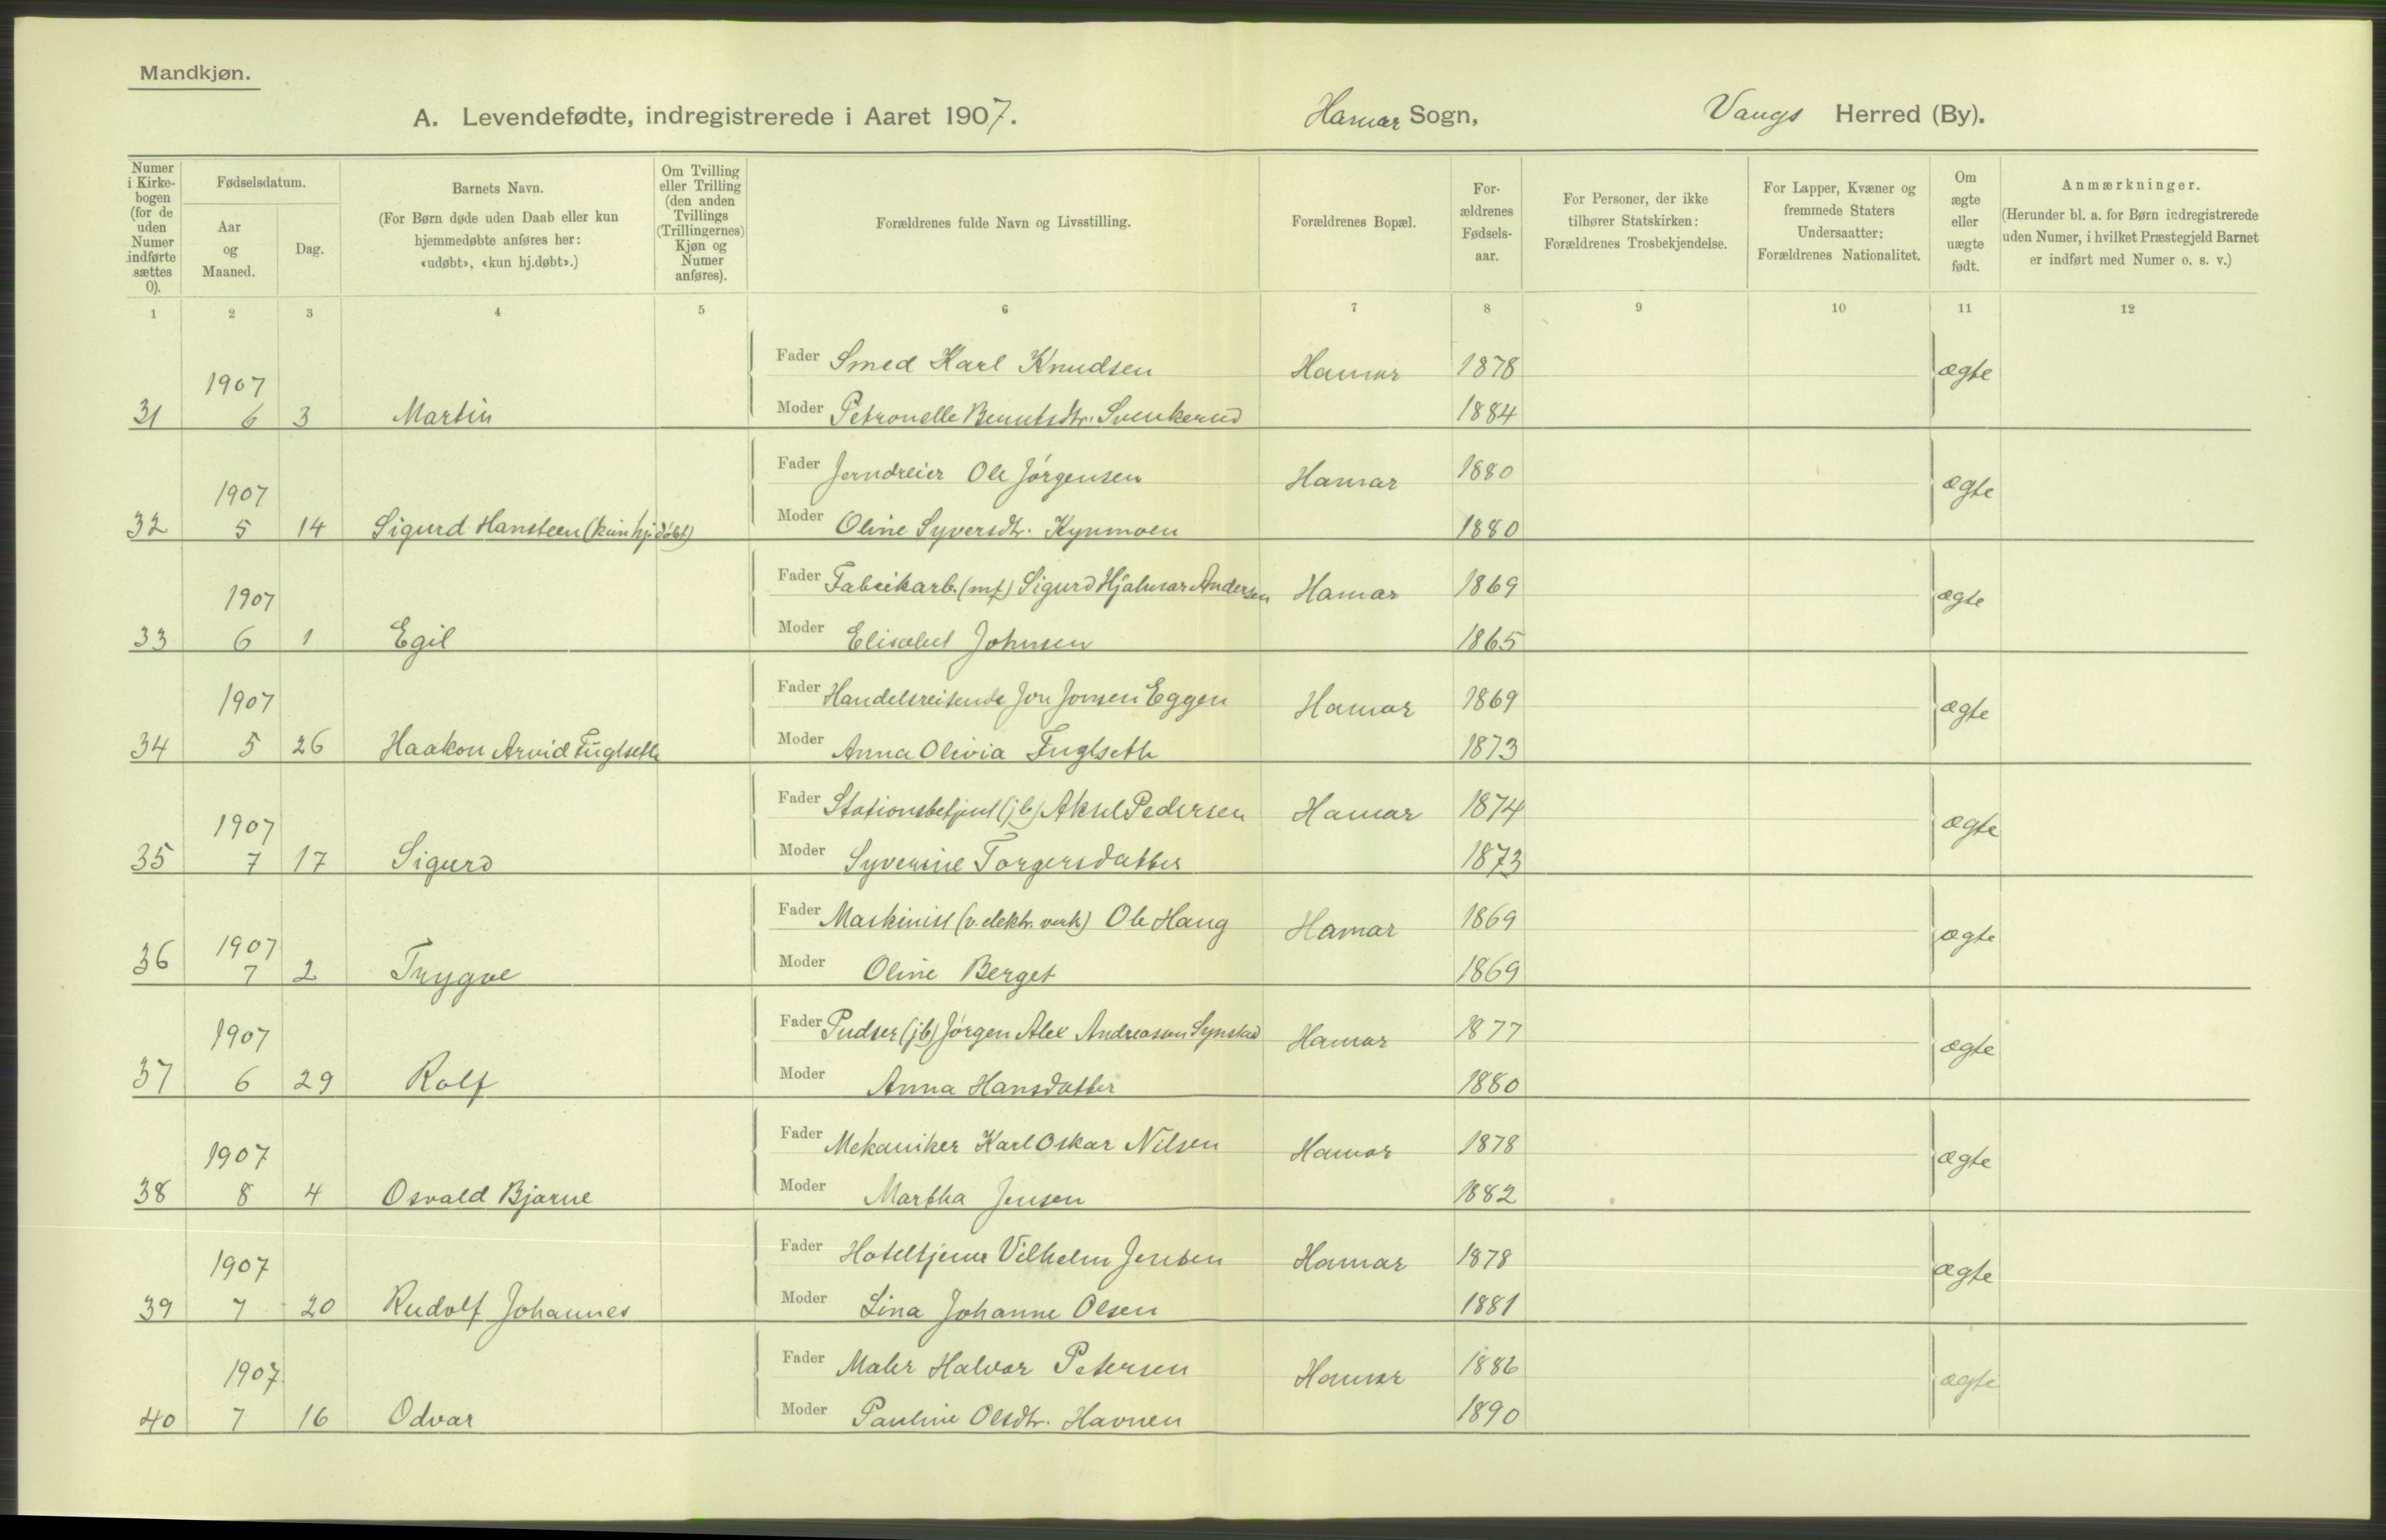 Mandkjøn.
A. Levendefødte, indregistrerede i Aaret 1907. Hamar Sogn, Vangs Herred (By).
Numer i Kirkebogen (for de uden Numer indførte sættes 0).
Fødselsdatum.
Aar og Maaned.
Dag.
Barnets Navn.
(For Børn døde uden Daab eller kun hjemmedøbte anføres her: «udøbt», «kun hj.døbt».)
Om Tvilling eller Trilling (den anden Tvillings (Trillingernes) Kjøn og Numer anføres).
Forældrenes fulde Navn og Livsstilling.
Forældrenes Bopæl.
Forældrenes Fødselsaar.
For Personer, der ikke tilhører Statskirken: Forældrenes Trosbekjendelse.
For Lapper, Kvæner og fremmede Staters Undersaatter: Forældrenes Nationalitet.
Om ægte eller uægte født.
Anmærkninger.
(Herunder bl. a. for Børn indregistrerede uden Numer, i hvilket Præstegjeld Barnet er indført med Numer o. s. v.)
1 2 3 4 5 6 7 8 9 10 11 12
Fader Smed Karl Knudsen Hamar 1878 ægte
1907
31 6 3 Martin Moder Petronelle Berntsdtr. Svenkerud 1884
Fader Jerndreier Ole Jörgensen Hamar 1880 ægte
1907
32 5 14 Sigurd Hansteen (kun hj.døbt) Moder Oline Syversdtr. Kynmoen 1880
Fader Fabrikarb. (mf) Sigurd Hjalmar Andersen Hamar 1869 ægte
1907
33 6 1 Egil Moder Elisabet Johnsen 1865
Fader Handelsreisende Jon Jonsen Eggen Hamar 1869 ægte
1907
34 5 26 Haakon Arvid Fuglseth Moder Anna Olivia Fuglseth 1873
Fader Stationsbetjent (jb) Aksel Pedersen Hamar 1874 ægte
1907
35 7 17 Sigurd Moder Syverine Torgersdatter 1873
Fader Maskinist (v. elektr. verk) Ole Haug Hamar 1869 ægte
1907
36 7 2 Trygve Moder Oline Berget 1869
Fader Pudser (jb) Jörgen Alex Andreassen Synstad Hamar 1877 ægte
1907
37 6 29 Rolf Moder Anna Hansdatter 1880
Fader Mekaniker Karl Oskar Nilsen Hamar 1878 ægte
1907
38 8 4 Osvald Bjarne Moder Martha Jensen 1882
Fader Hoteltjener Vilhelm Jensen Hamar 1878 ægte
1907
39 7 20 Rudolf Johannes Moder Lina Johanne Olsen 1881
Fader Maler Halvor Petersen Hamar 1886 ægte
1907
40 7 16 Odvar Moder Pauline Olsdtr. Havnen 1890